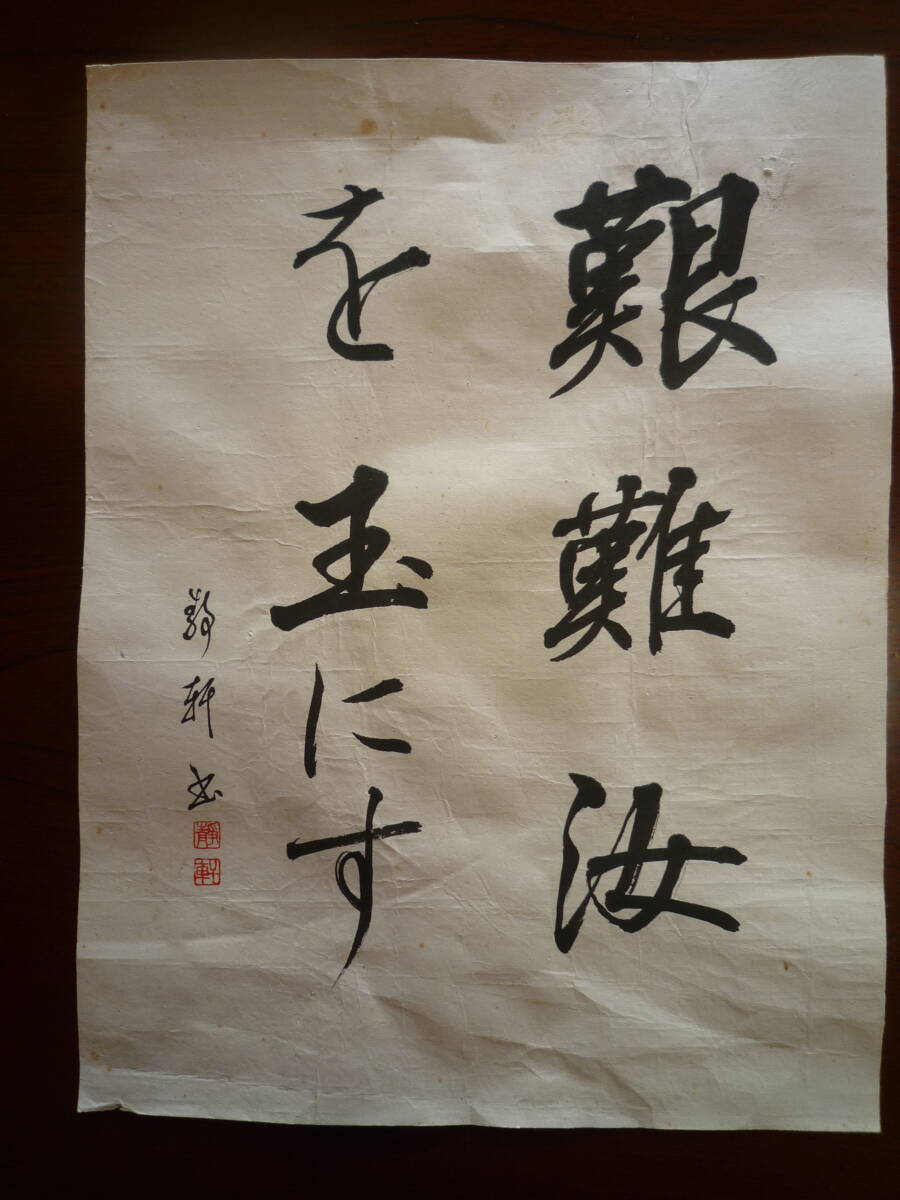 艱難汝
を玉にす
静軒書
静軒